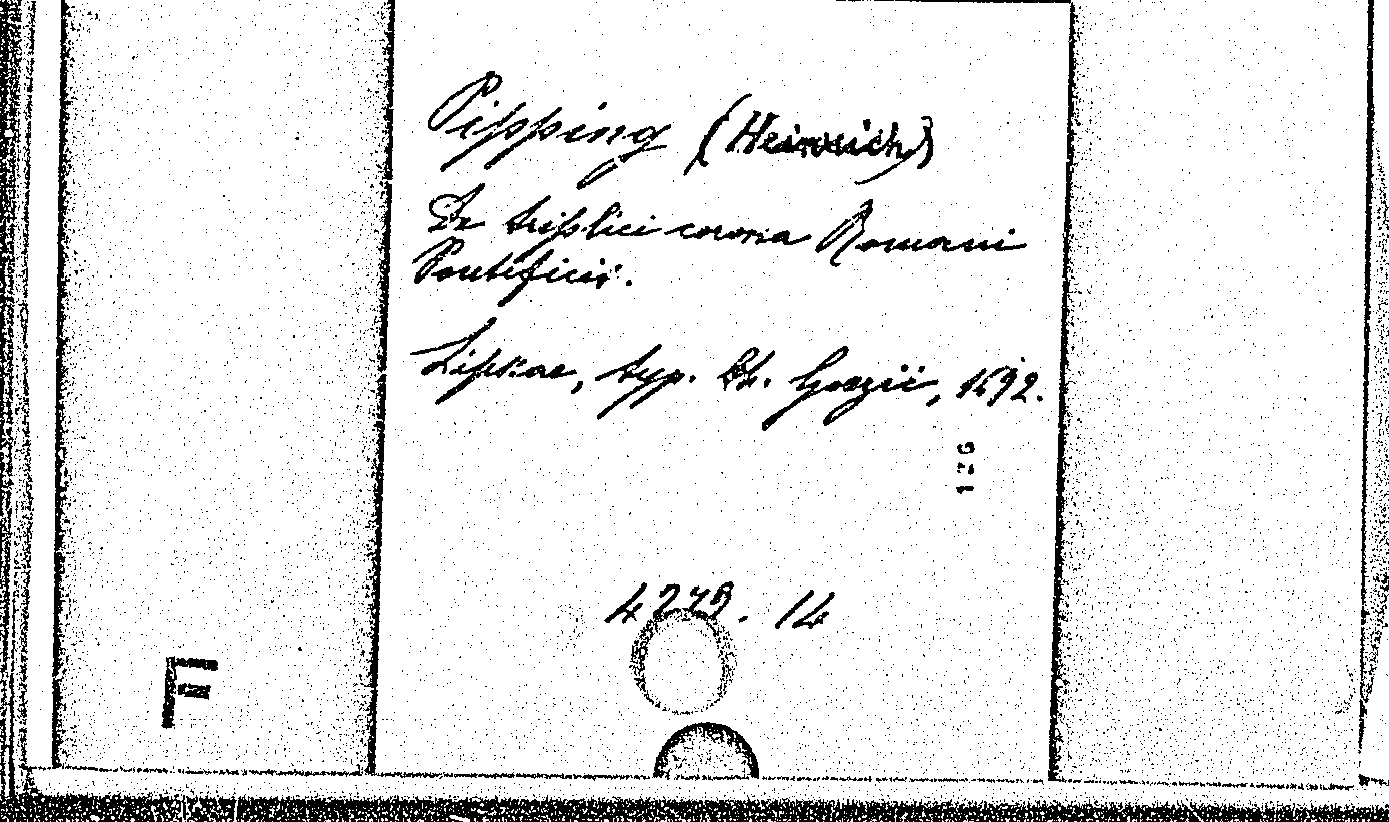 Pipping (Heinrich)
De triplici corona Romani
Pontificis.
Lipsiae, typ. Ch. Goezii, 1692.
126
4279. 14
F